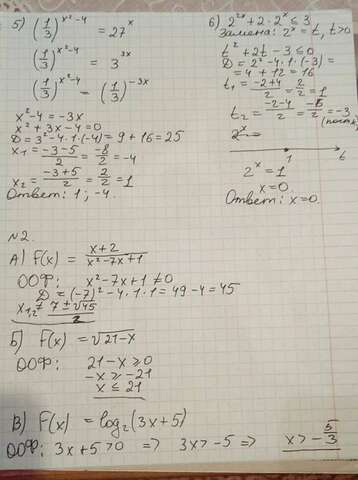 5) (1/3)^(x²-4) = 27^x
(1/3)^(x²-4) = 3^(3x)
(1/3)^(x²-4) = (1/3)^(-3x)
x²-4 = -3x
x²+3x-4=0
D=3²-4·1·(-4)=9+16=25
x₁ = (-3-5)/2 = -8/2 = -4
x₂ = (-3+5)/2 = 2/2 = 1
Ответ: 1; -4.
6) 2^(2x)+2·2^x ≤ 3
Замена: 2^x = t, t>0
t²+2t-3≤0
D=2²-4·1·(-3)=
=4+12=16
t₁ = (-2+4)/2 = 2/2 = 1
t₂ = (-2-4)/2 = -6/2 = -3
2^x=
1 6
2^x=1
x=0
Ответ: x=0.
№2.
А) F(x) = (x+2)/(x²-7x+1)
ООФ: x²-7x+1≠0
D=(-7)²-4·1·1=49-4=45
x₁,₂≠ (7±√45)/2
Б) F(x) = √(21-x)
ООФ: 21-x≥0
-x≥-21
x≤21
В) F(x) = log₂(3x+5)
ООФ: 3x+5>0 => 3x>-5 => x>-5/3